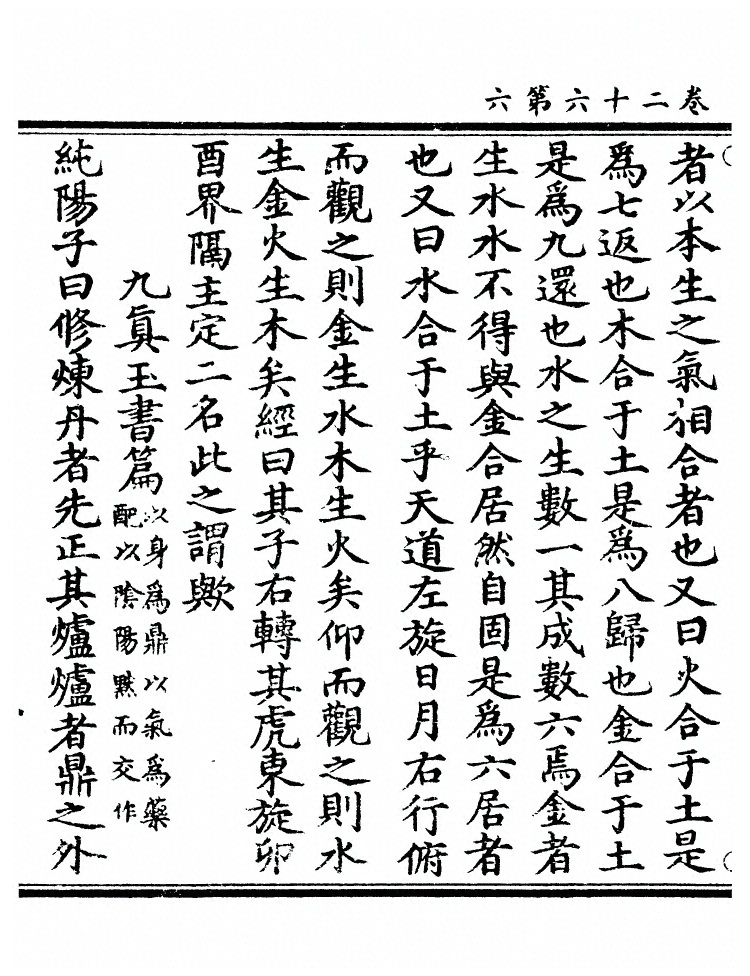 卷二十六第六
者以本生之氣相合者也又曰火合于土是
爲七返也木合于土是爲八歸也金合于土
是爲九還也水之生數一其成數六焉金者
生水水不得與金合居然自固是爲六居者
也又曰水合于土乎天道左旋日月右行俯
而觀之則金生水木生火矣仰而觀之則水
生金火生木矣經曰其子右轉其虎東旋卯
酉界隔主定二名此之謂歟
九眞玉書篇
以身爲鼎以氣爲藥
配以陰陽默而交作
純陽子曰修煉丹者先正其爐爐者鼎之外